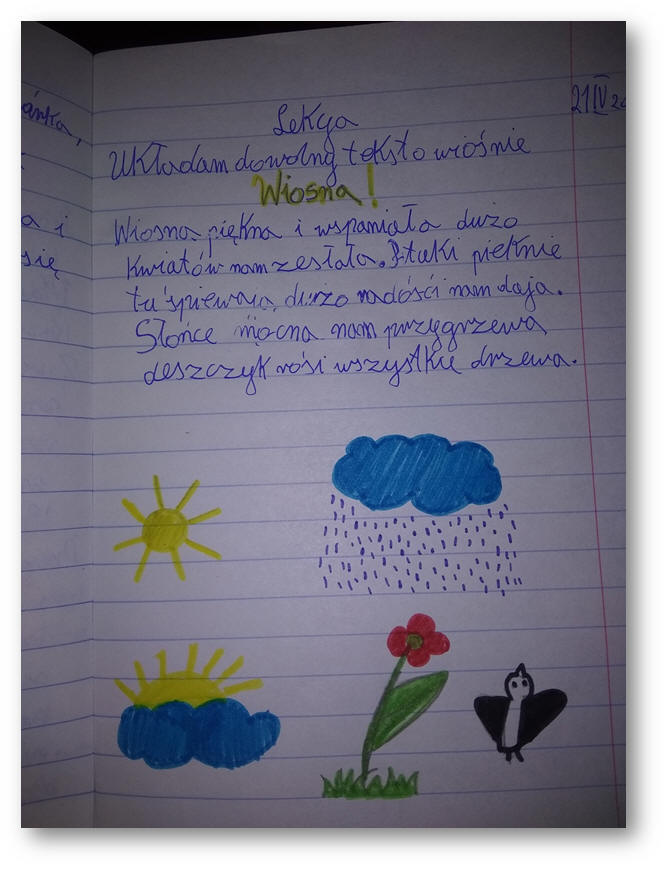 ańka,
a i
się
21 IV 20
Lekcja
Układam dowolny tekst o wiośnie
Wiosna!
Wiosna piękna i wspaniała dużo
kwiatów nam zesłała. Ptaki pięknie
tu śpiewają, dużo radości nam dają.
Słońce mocna nam przygrzewa
deszczyk rosi wszystkie drzewa.